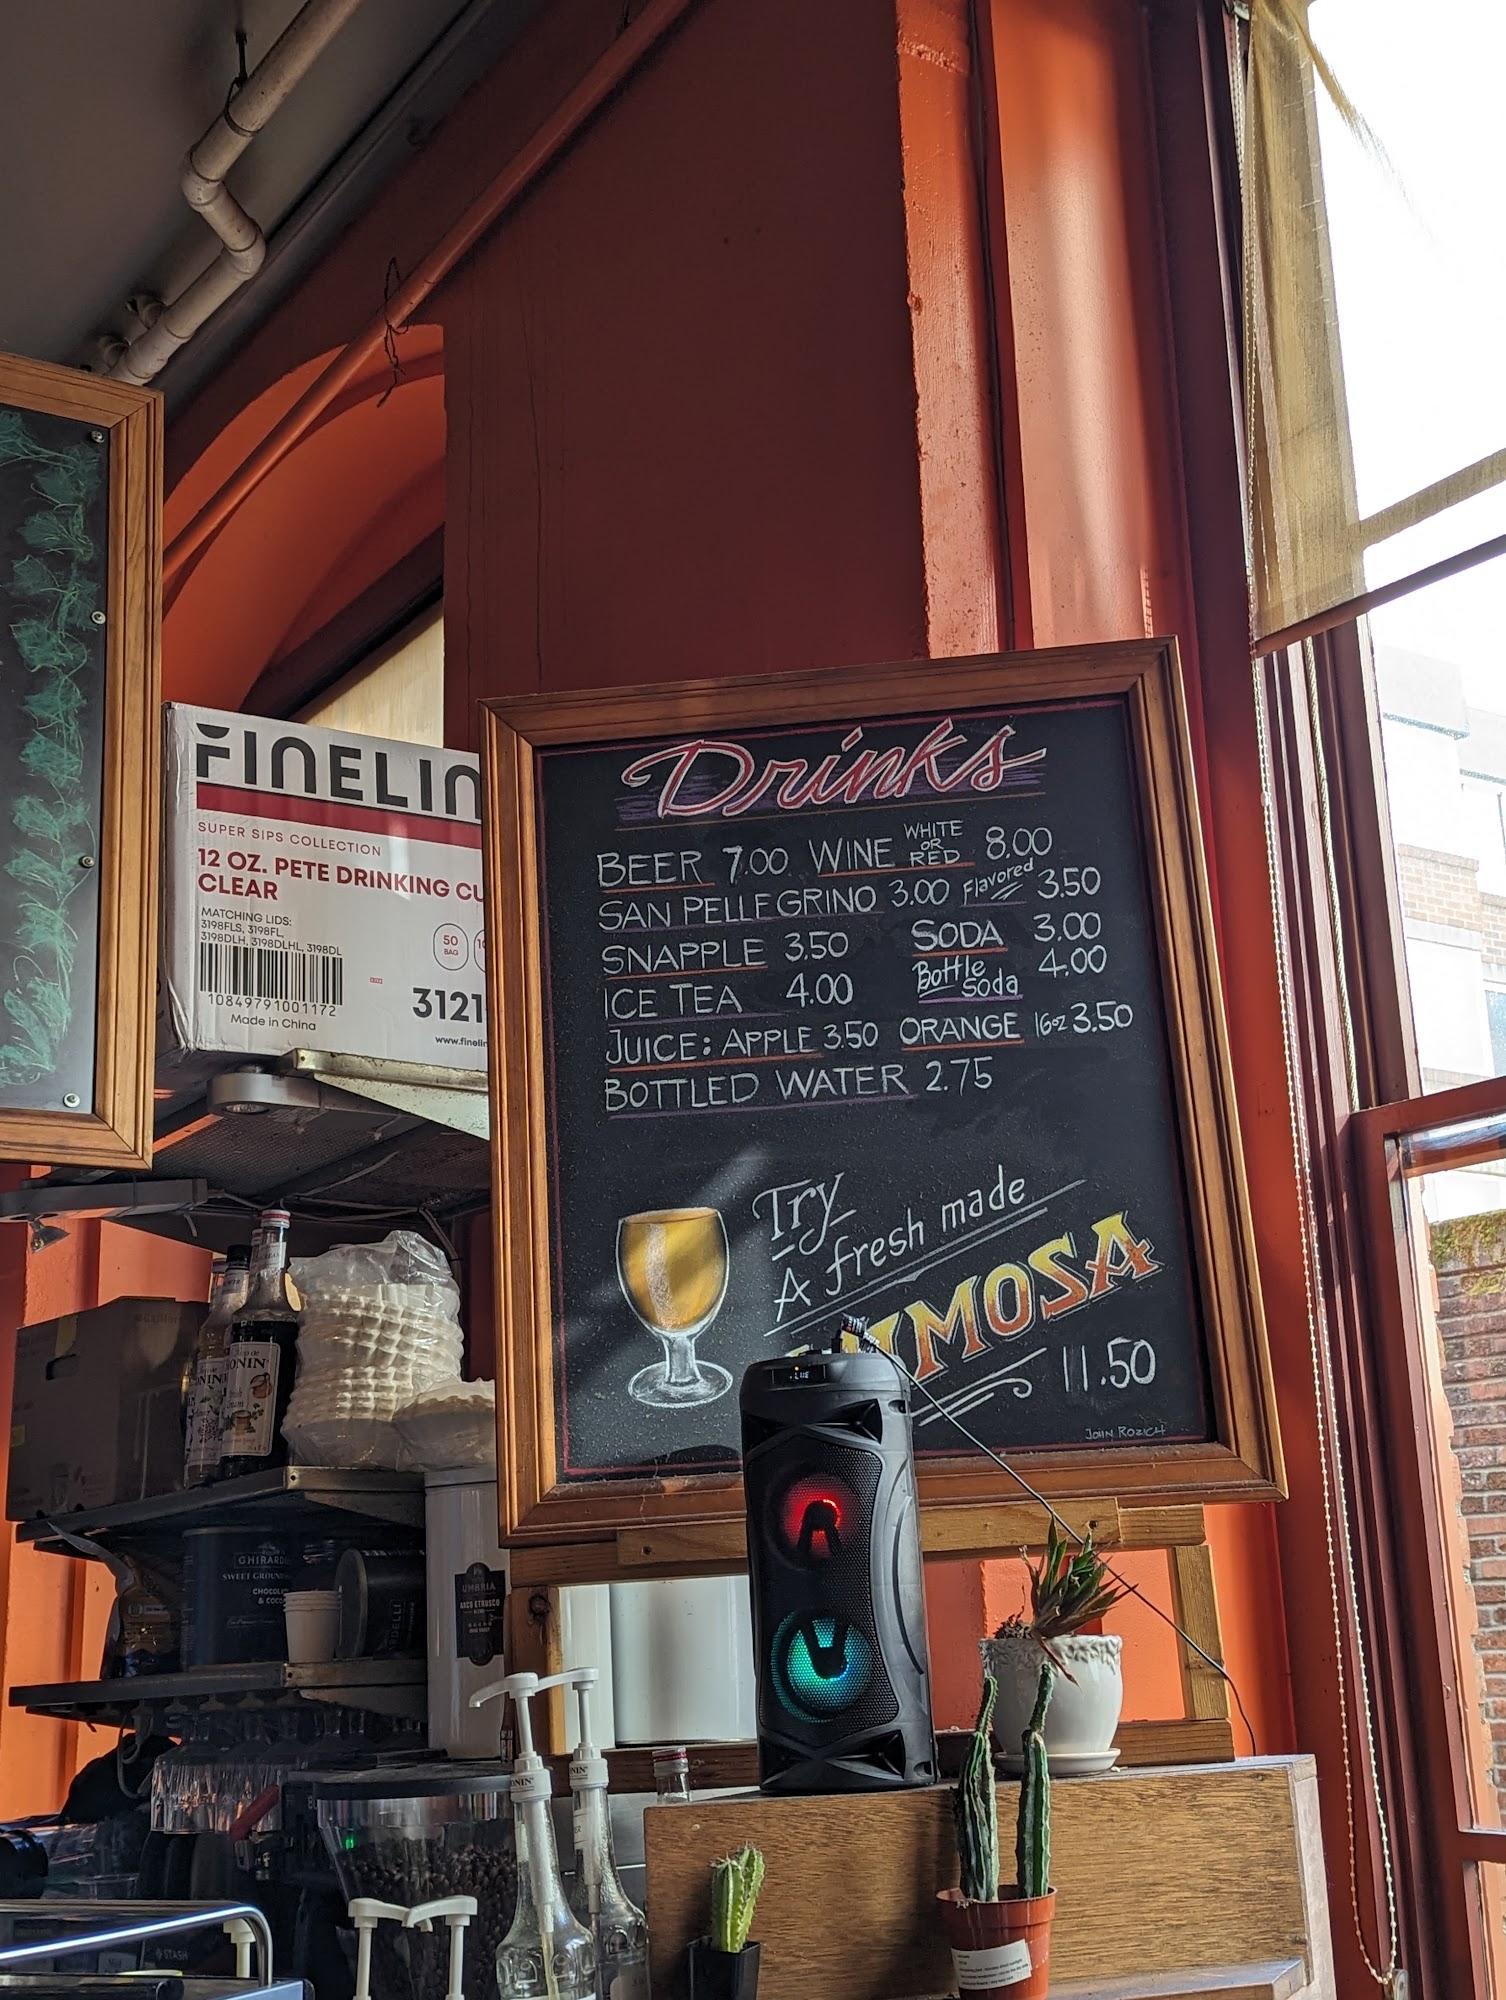 Drinks
BEER 7.00 WINE WHITE OR RED 8.00
SAN PELLEGRINO 3.00 Flavored 3.50
SNAPPLE 3.50 SODA 3.00
ICE TEA 4.00 Bottle Soda 4.00
JUICE: APPLE 3.50 ORANGE 16oz 3.50
BOTTLED WATER 2.75
Try
A fresh made
MIMOSA
11.50
JOHN ROZICH
FINELIN
SUPER SIPS COLLECTION
12 OZ. PETE DRINKING CU
CLEAR
MATCHING LIDS:
3198FLS, 3198FL,
3198DLH, 3198DLHL, 3198DL
50
BAG
10849791001172
Made in China
3121
www.finelin
MONIN
GHIRARD
SWEET GROUN
CHOCOL
& COCO
UMBRIA
ARCO ETRUSCO
STASH